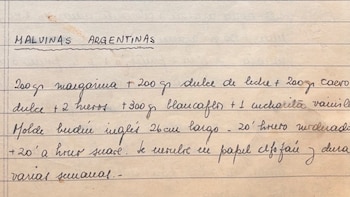 MALVINAS ARGENTINAS
200 gr margarina + 200 gr dulce de leche + 200 gr cacao
dulce + 2 huevos + 300 gr blancaflor + 1 cucharita vainilla
Molde budín inglés 26 cm largo - 20' horno moderado
+ 20' a horno suave. Se envuelve en papel celofán y dura
varias semanas.-